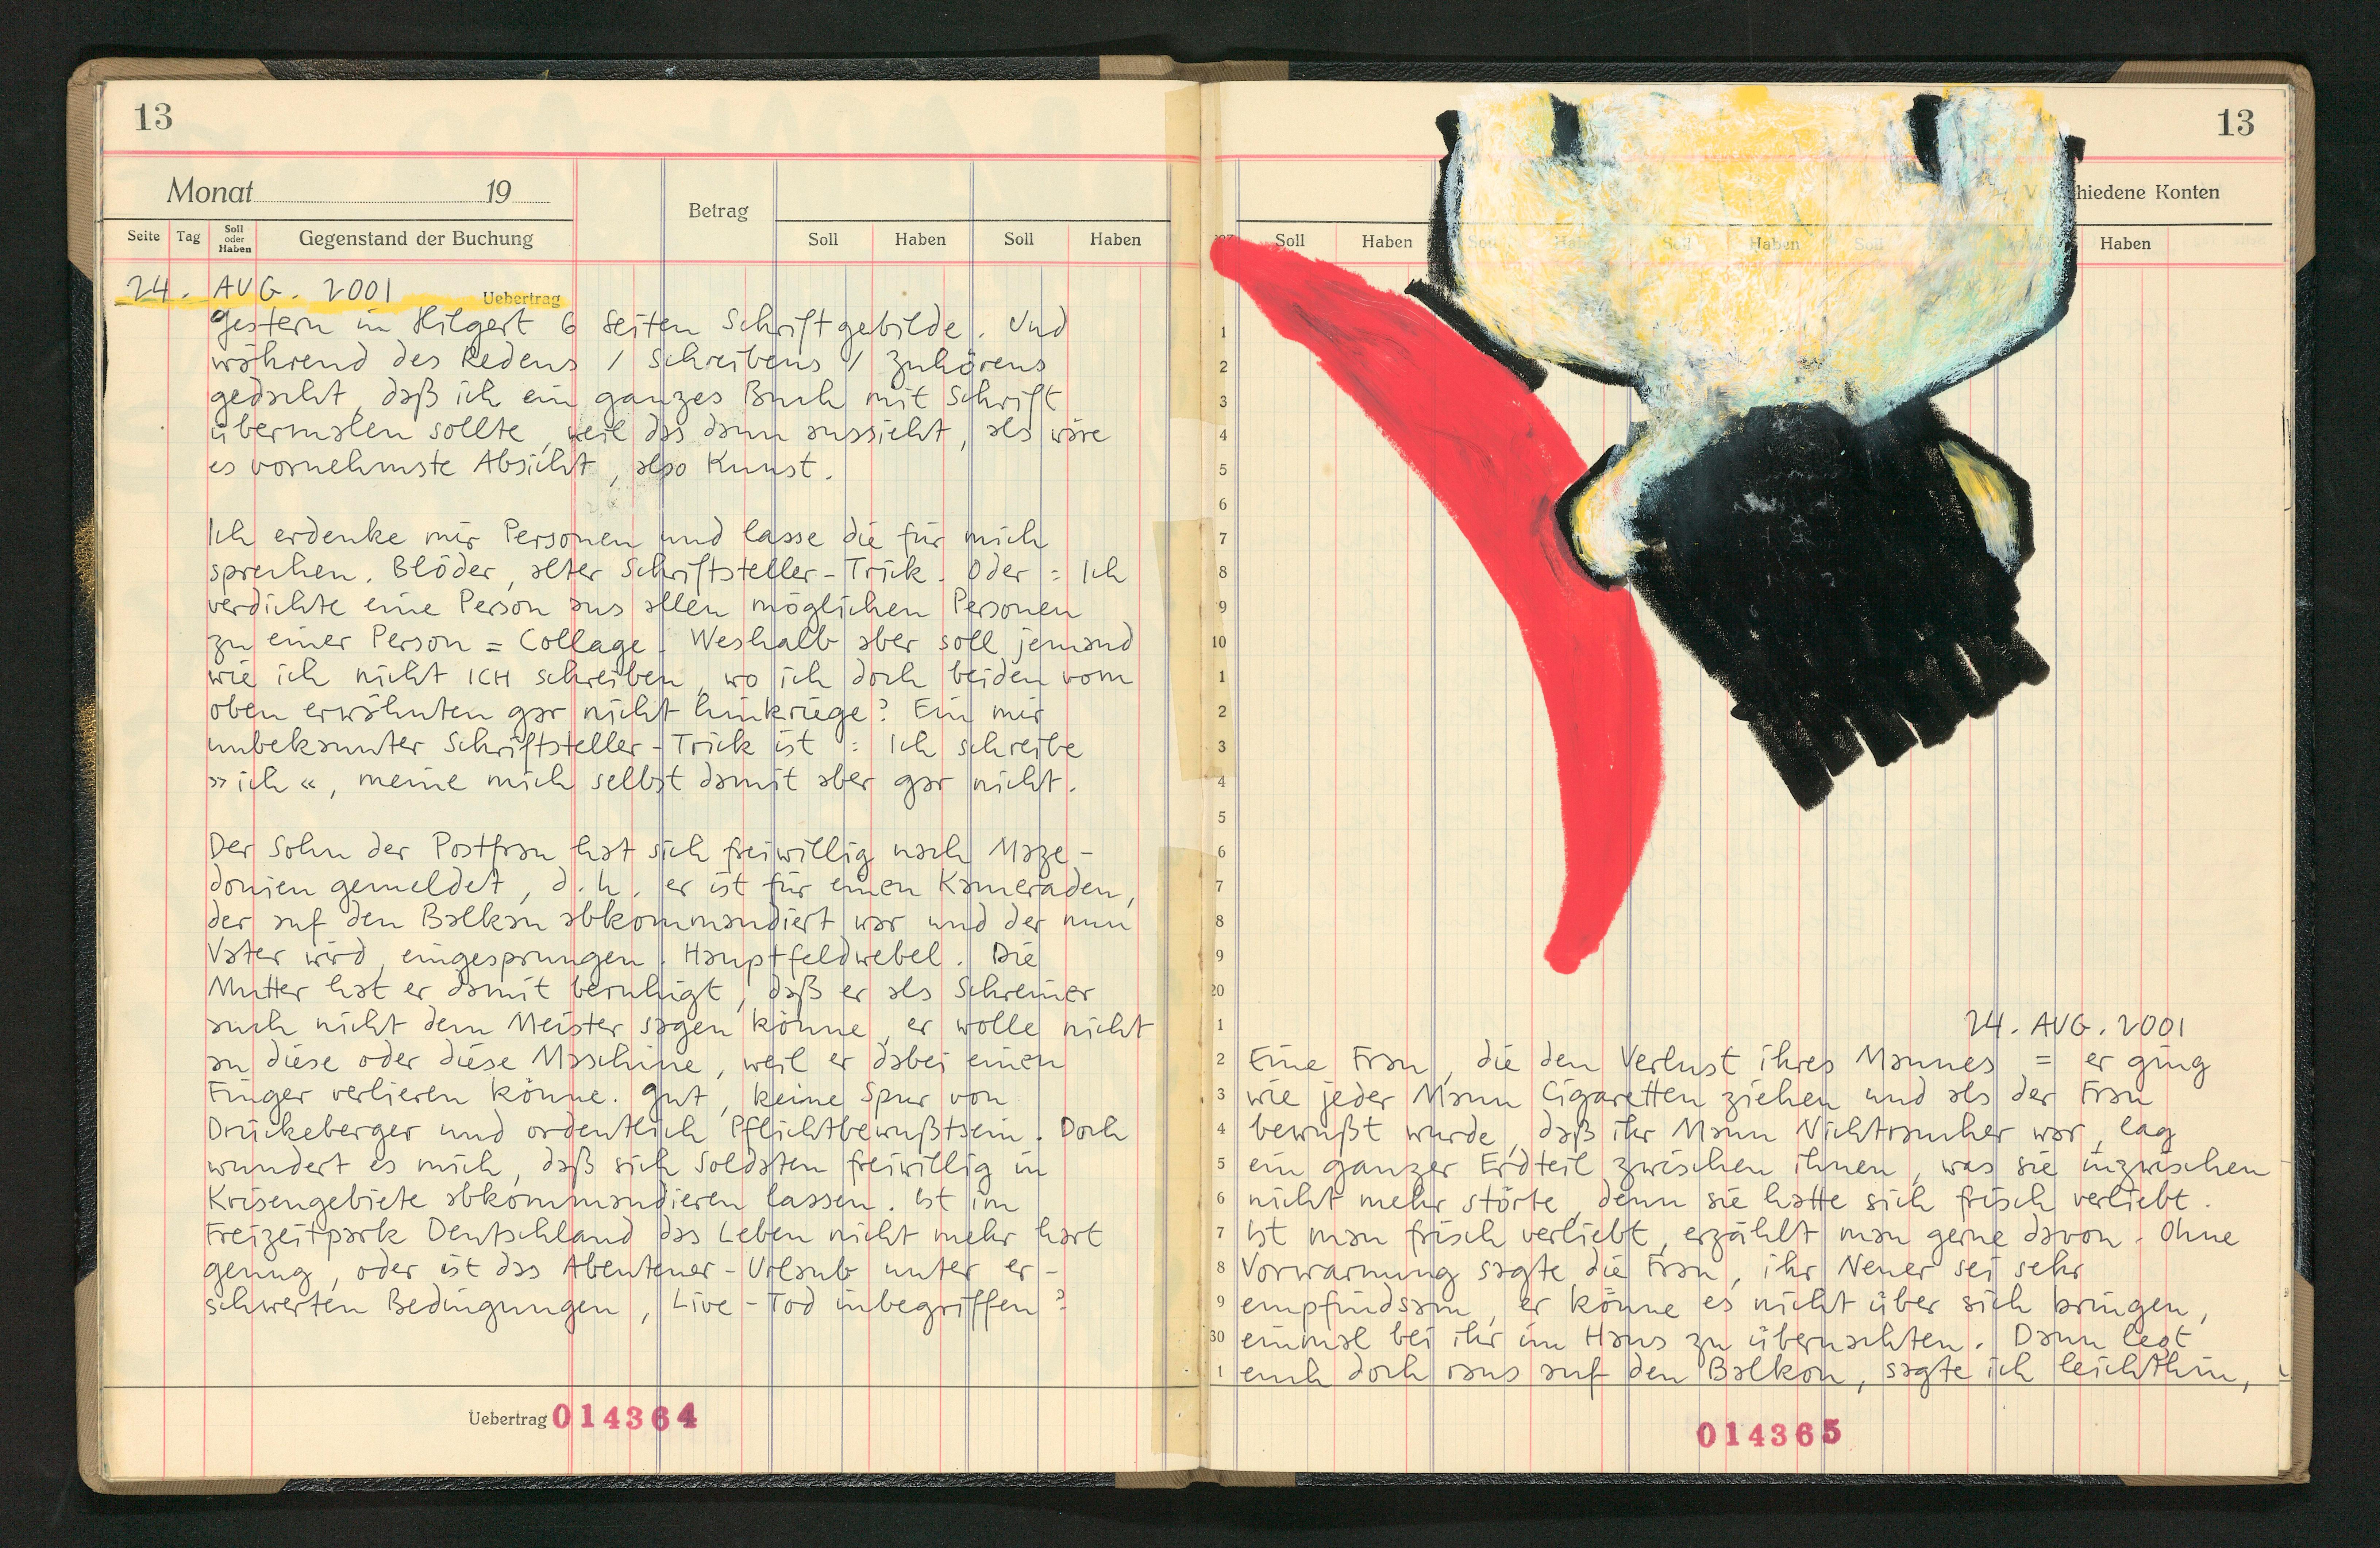 13
Monat 19
Betrag
Seite Tag Soll oder Haben Gegenstand der Buchung Soll Haben Soll Haben
24. AUG. 2001 Uebertrag
Gestern in Hilgert 6 Seiten Schriftgebilde. Und
während des Redens / Schreibens / Zuhörens
gedacht, daß ich ein ganzes Buch mit Schrift
übermalen sollte, weil das dann aussieht, als wäre
es vornehmste Absicht, also Kunst.
Ich erdenke mir Personen und lasse die für mich
sprechen. Blöder, alter Schriftsteller-Trick. Oder: Ich
verdichte eine Person aus allen möglichen Personen
zu einer Person = Collage. Weshalb aber soll jemand
wie ich nicht ICH schreiben, wo ich doch beiden vom
oben erwähnten gar nicht hinkriege? Ein mir
unbekannter Schriftsteller-Trick ist: Ich schreibe
»ich«, meine mich selbst damit aber gar nicht.
Der Sohn der Postfrau hat sich freiwillig nach Maze-
donien gemeldet, d.h. er ist für einen Kameraden,
der auf den Balkan abkommandiert war und der nun
Vater wird, eingesprungen. Hauptfeldwebel. Die
Mutter hat er damit beruhigt, daß er als Schreiner
auch nicht dem Meister sagen könne, er wolle nicht
an diese oder diese Maschine, weil er dabei einen
Finger verlieren könne. Gut, keine Spur von
Drückeberger und ordentlich Pflichtbewußtsein. Doch
wundert es mich, daß sich Soldaten freiwillig in
Krisengebiete abkommandieren lassen. Ist im
Freizeitpark Deutschland das Leben nicht mehr hart
genug, oder ist das Abenteuer-Urlaub unter er-
schwerten Bedingungen, Live-Tod inbegriffen?
Uebertrag 014364
13
hiedene Konten
Soll Haben Soll Haben Soll Haben Soll Haben
1
2
3
4
5
6
7
8
9
10
1
2
3
4
5
6
7
8
9
20
1 24. AUG. 2001
2 Eine Frau, die den Verlust ihres Mannes = er ging
3 wie jeder Mann Cigaretten ziehen und als der Frau
4 bewußt wurde, daß ihr Mann Nichtraucher war, lag
5 ein ganzer Erdteil zwischen ihnen, was sie inzwischen
6 nicht mehr störte, denn sie hatte sich frisch verliebt.
7 Ist man frisch verliebt, erzählt man gerne davon. Ohne
8 Vorwarnung sagte die Frau, ihr Neuer sei sehr
9 empfindsam, er könne es nicht über sich bringen,
30 einmal bei ihr im Haus zu übernachten. Dann legt
1 euch doch raus auf den Balkon, sagte ich leichthin,
014365